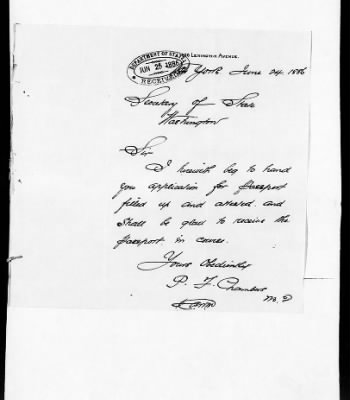 LEXINGTON AVENUE.
DEPARTMENT OF STATE
JUN 25 1886
RECEIVED
New York June 24. 1886
Secretary of State
Washington
Sir
I herewith beg to hand
you application for Passport
filled up and attested. and
shall be glad to receive the
Passport in course.
Yours Obediently
P. F. Chambers
M. D